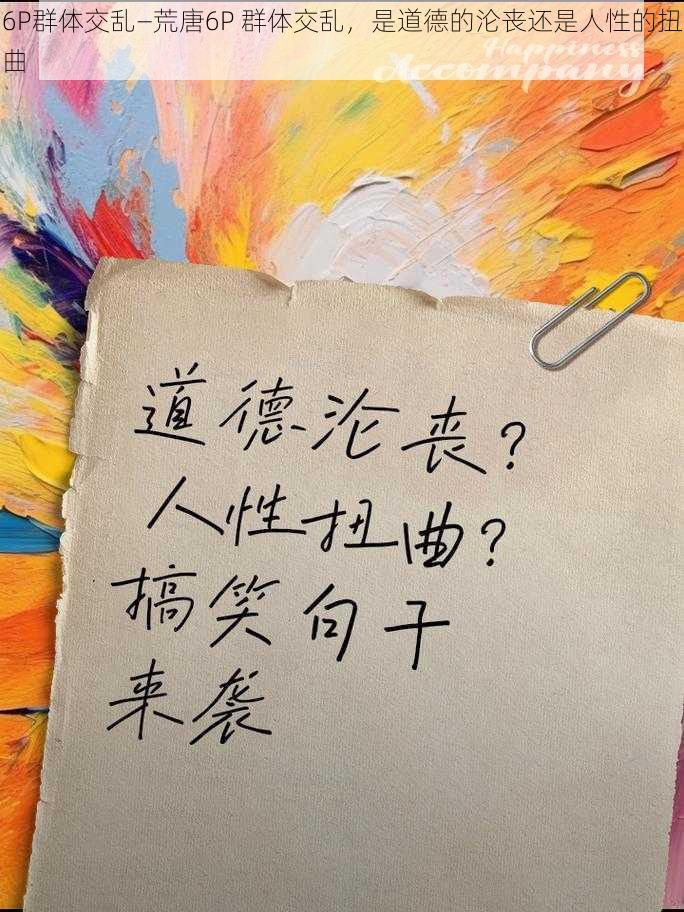 6P群体交乱—荒唐6P 群体交乱，是道德的沦丧还是人性的扭
曲
Happiness
Accompany
道德沦丧？
人性扭曲？
搞笑句子
来袭